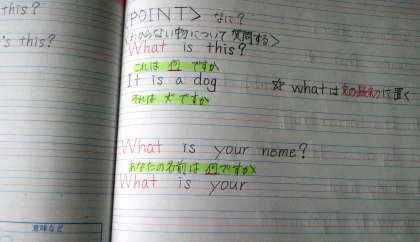 this?
's this?
POINT> なに?
<わからない物について質問する>
What is this?
これは 何 ですか
It is a dog
それは 犬 ですか
☆ whatは文の最初に置く
What is your nome?
あなたの名前は 何ですか
What is your
意味など